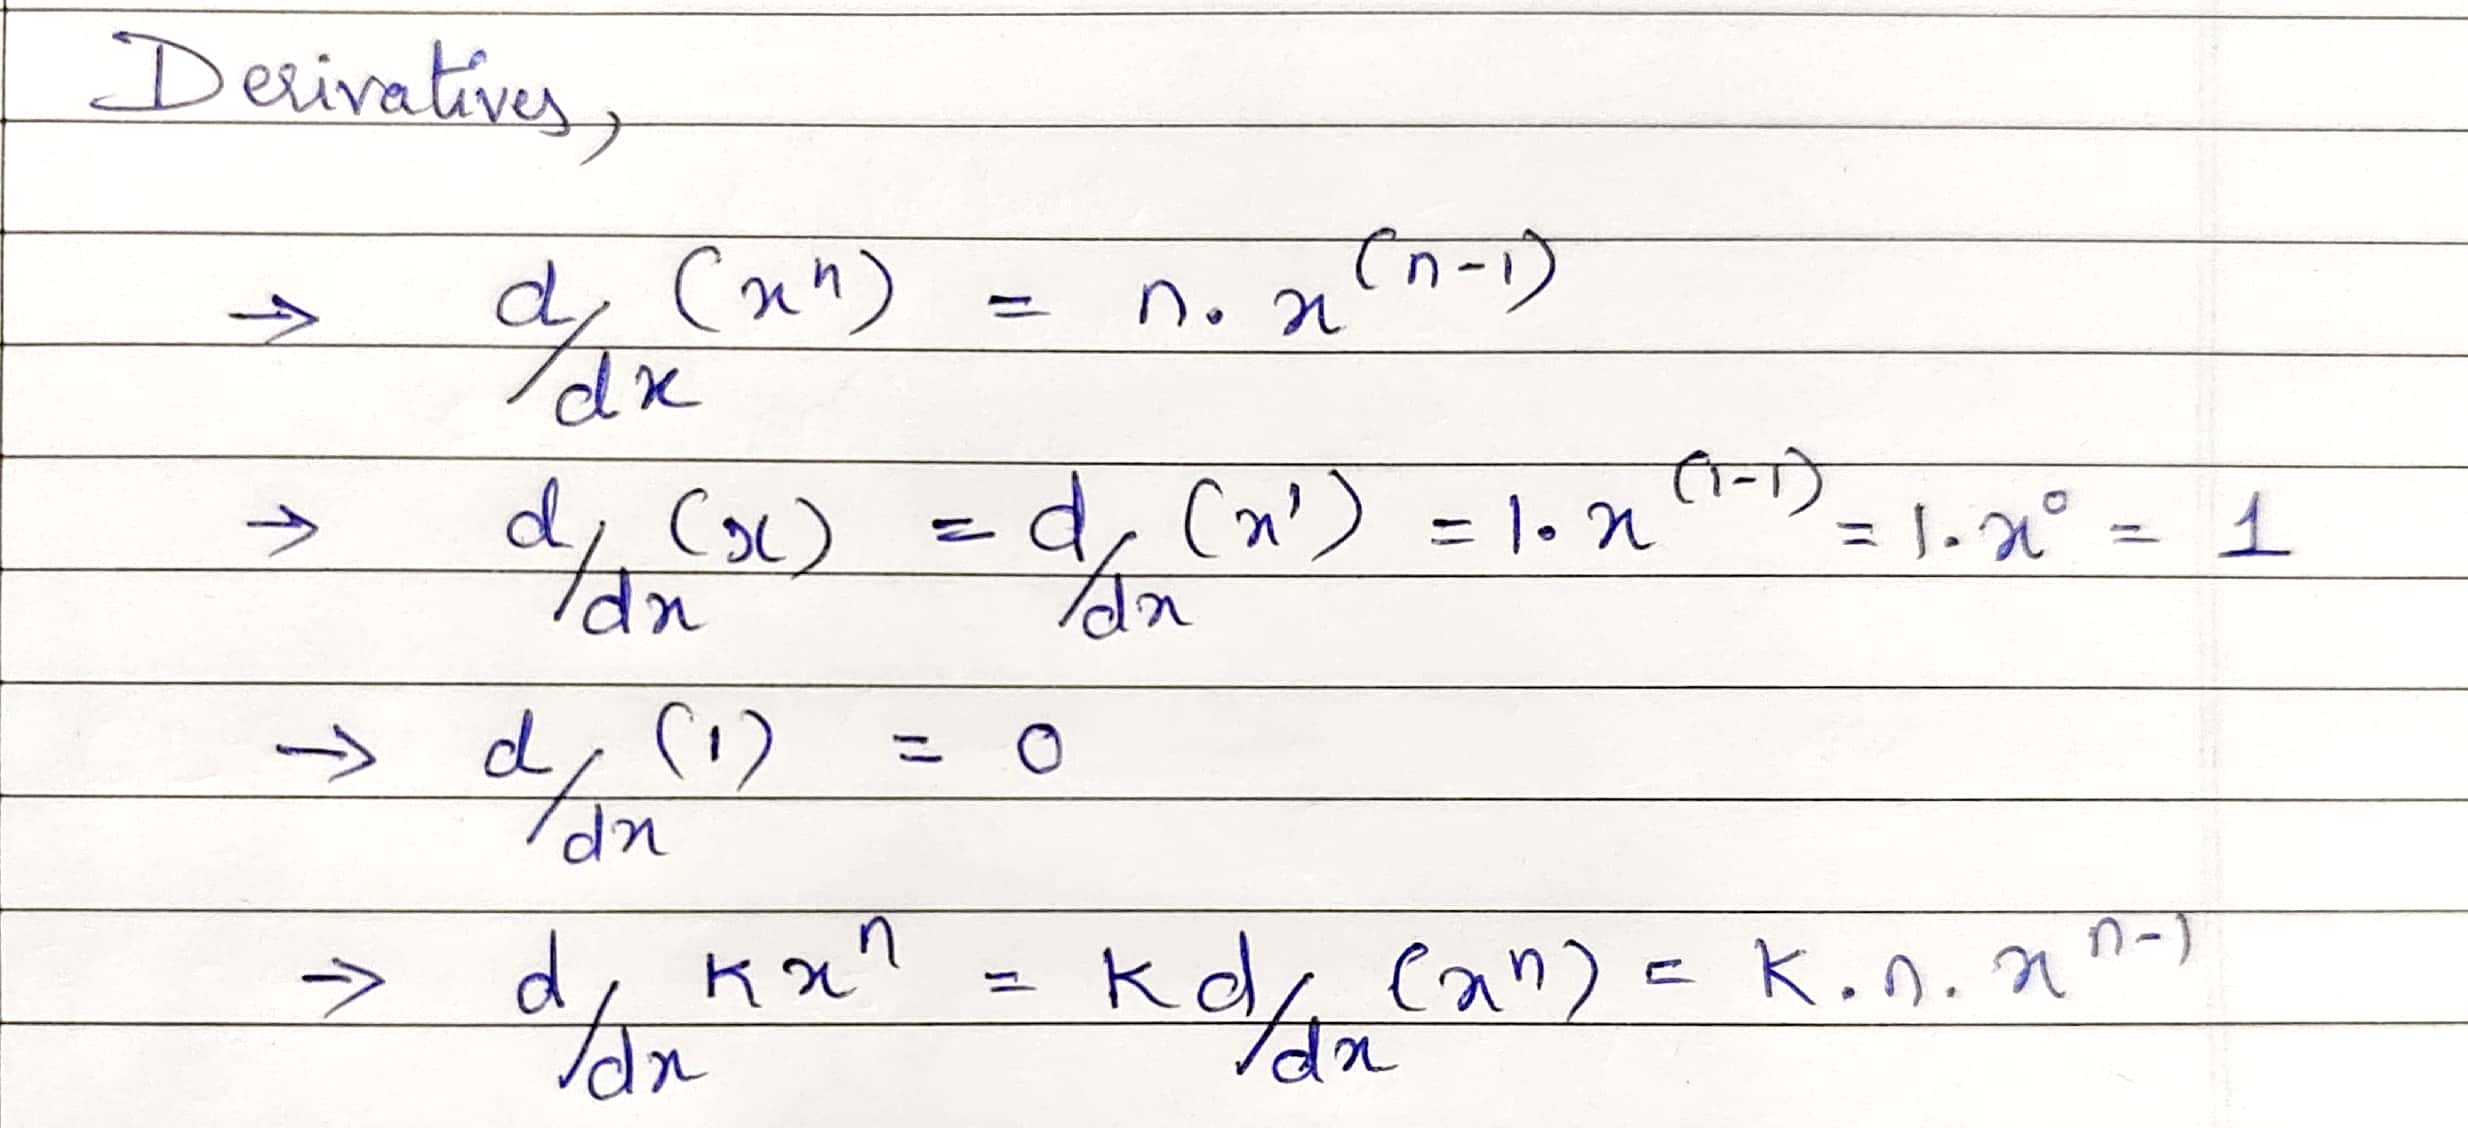 Derivatives,
→ d/dx (xⁿ) = n. x⁽ⁿ⁻¹⁾
→ d/dx (x) = d/dx (x¹) = 1. x⁽¹⁻¹⁾ = 1. x⁰ = 1
→ d/dx (1) = 0
→ d/dx K xⁿ = K d/dx (xⁿ) = K. n. xⁿ⁻¹